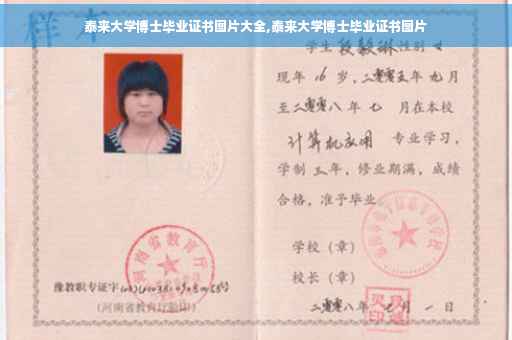 泰来大学博士毕业证书图片大全,泰来大学博士毕业证书图片
样本
学生 段毅琳 性别 女
现年 16 岁，二零零五年 九 月
至二零零八年 七 月在本校
计算机应用 专业学习，
学制 三 年，修业期满，成绩
合格，准予毕业。
学校（章）
校长（章）
二零零八年 七 月 一 日
河南省教育厅
豫教职专证字
（河南省教育厅验印）